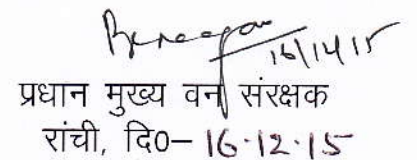 16/12/15
प्रधान मुख्य वन संरक्षक
रांची, दि0– 16.12.15